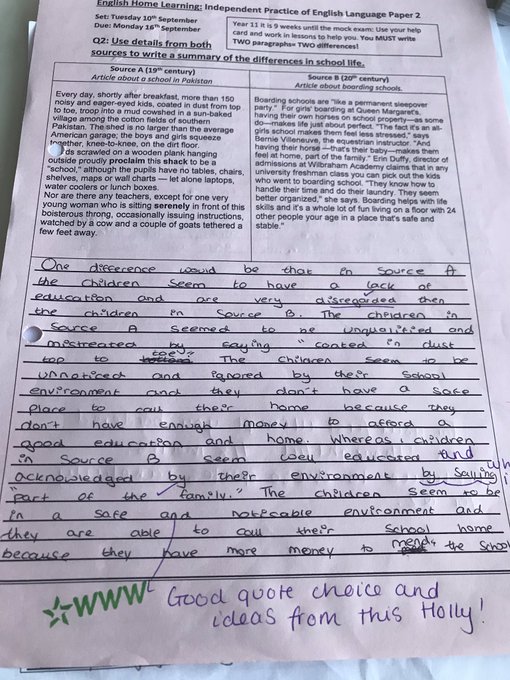 English Home Learning: Independent Practice of English Language Paper 2
Set: Tuesday 10th September
Due: Monday 16th September
Year 11 it is 9 weeks until the mock exam: Use your help card and work in lessons to help you. You MUST write TWO paragraphs= TWO differences!
Q2: Use details from both
sources to write a summary of the differences in school life.
Source A (19th century)
Article about a school in Pakistan
Every day, shortly after breakfast, more than 150
noisy and eager-eyed kids, coated in dust from top
to toe, troop into a mud cowshed in a sun-baked
village among the cotton fields of southern
Pakistan. The shed is no larger than the average
American garage; the boys and girls squeeze
together, knee-to-knee, on the dirt floor.
ds scrawled on a wooden plank hanging
outside proudly proclaim this shack to be a
"school," although the pupils have no tables, chairs,
shelves, maps or wall charts — let alone laptops,
water coolers or lunch boxes.
Nor are there any teachers, except for one very
young woman who is sitting serenely in front of this
boisterous throng, occasionally issuing instructions,
watched by a cow and a couple of goats tethered a
few feet away.
Source B (20th century)
Article about boarding schools.
Boarding schools are "like a permanent sleepover
party." For girls' boarding at Queen Margaret's,
having their own horses on school property—as some
do—makes life just about perfect. "The fact it's an all-
girls school makes them feel less stressed," says
Bernie Villeneuve, the equestrian instructor. "And
having their horse —that's their baby—makes them
feel at home, part of the family." Erin Duffy, director of
admissions at Wilbraham Academy claims that in any
university freshman class you can pick out the kids
who went to boarding school. "They know how to
handle their time and do their laundry. They seem
better organized," she says. Boarding helps with life
skills and it's a whole lot of fun living on a floor with 24
other people your age in a place that's safe and
stable."
One difference would be that in Source A
the children seem to have a lack of
education and are very disregarded then
the children in Source B. The children in
Source A seemed to be unqualified and
mistreated by saying "coated in dust
top to toe". The children seem to be
unnoticed and ignored by their school
environment and they don't have a safe
place to call their home because they
don't have enough money to afford a
good education and home. Whereas, children
in Source B seem well educated and
acknowledged by their environment by saying
"part of the family." The children seem to be
in a safe and noticable environment and
they are able to call their school home
because they have more money to mend the school
WWW Good quote choice and
ideas from this Holly!